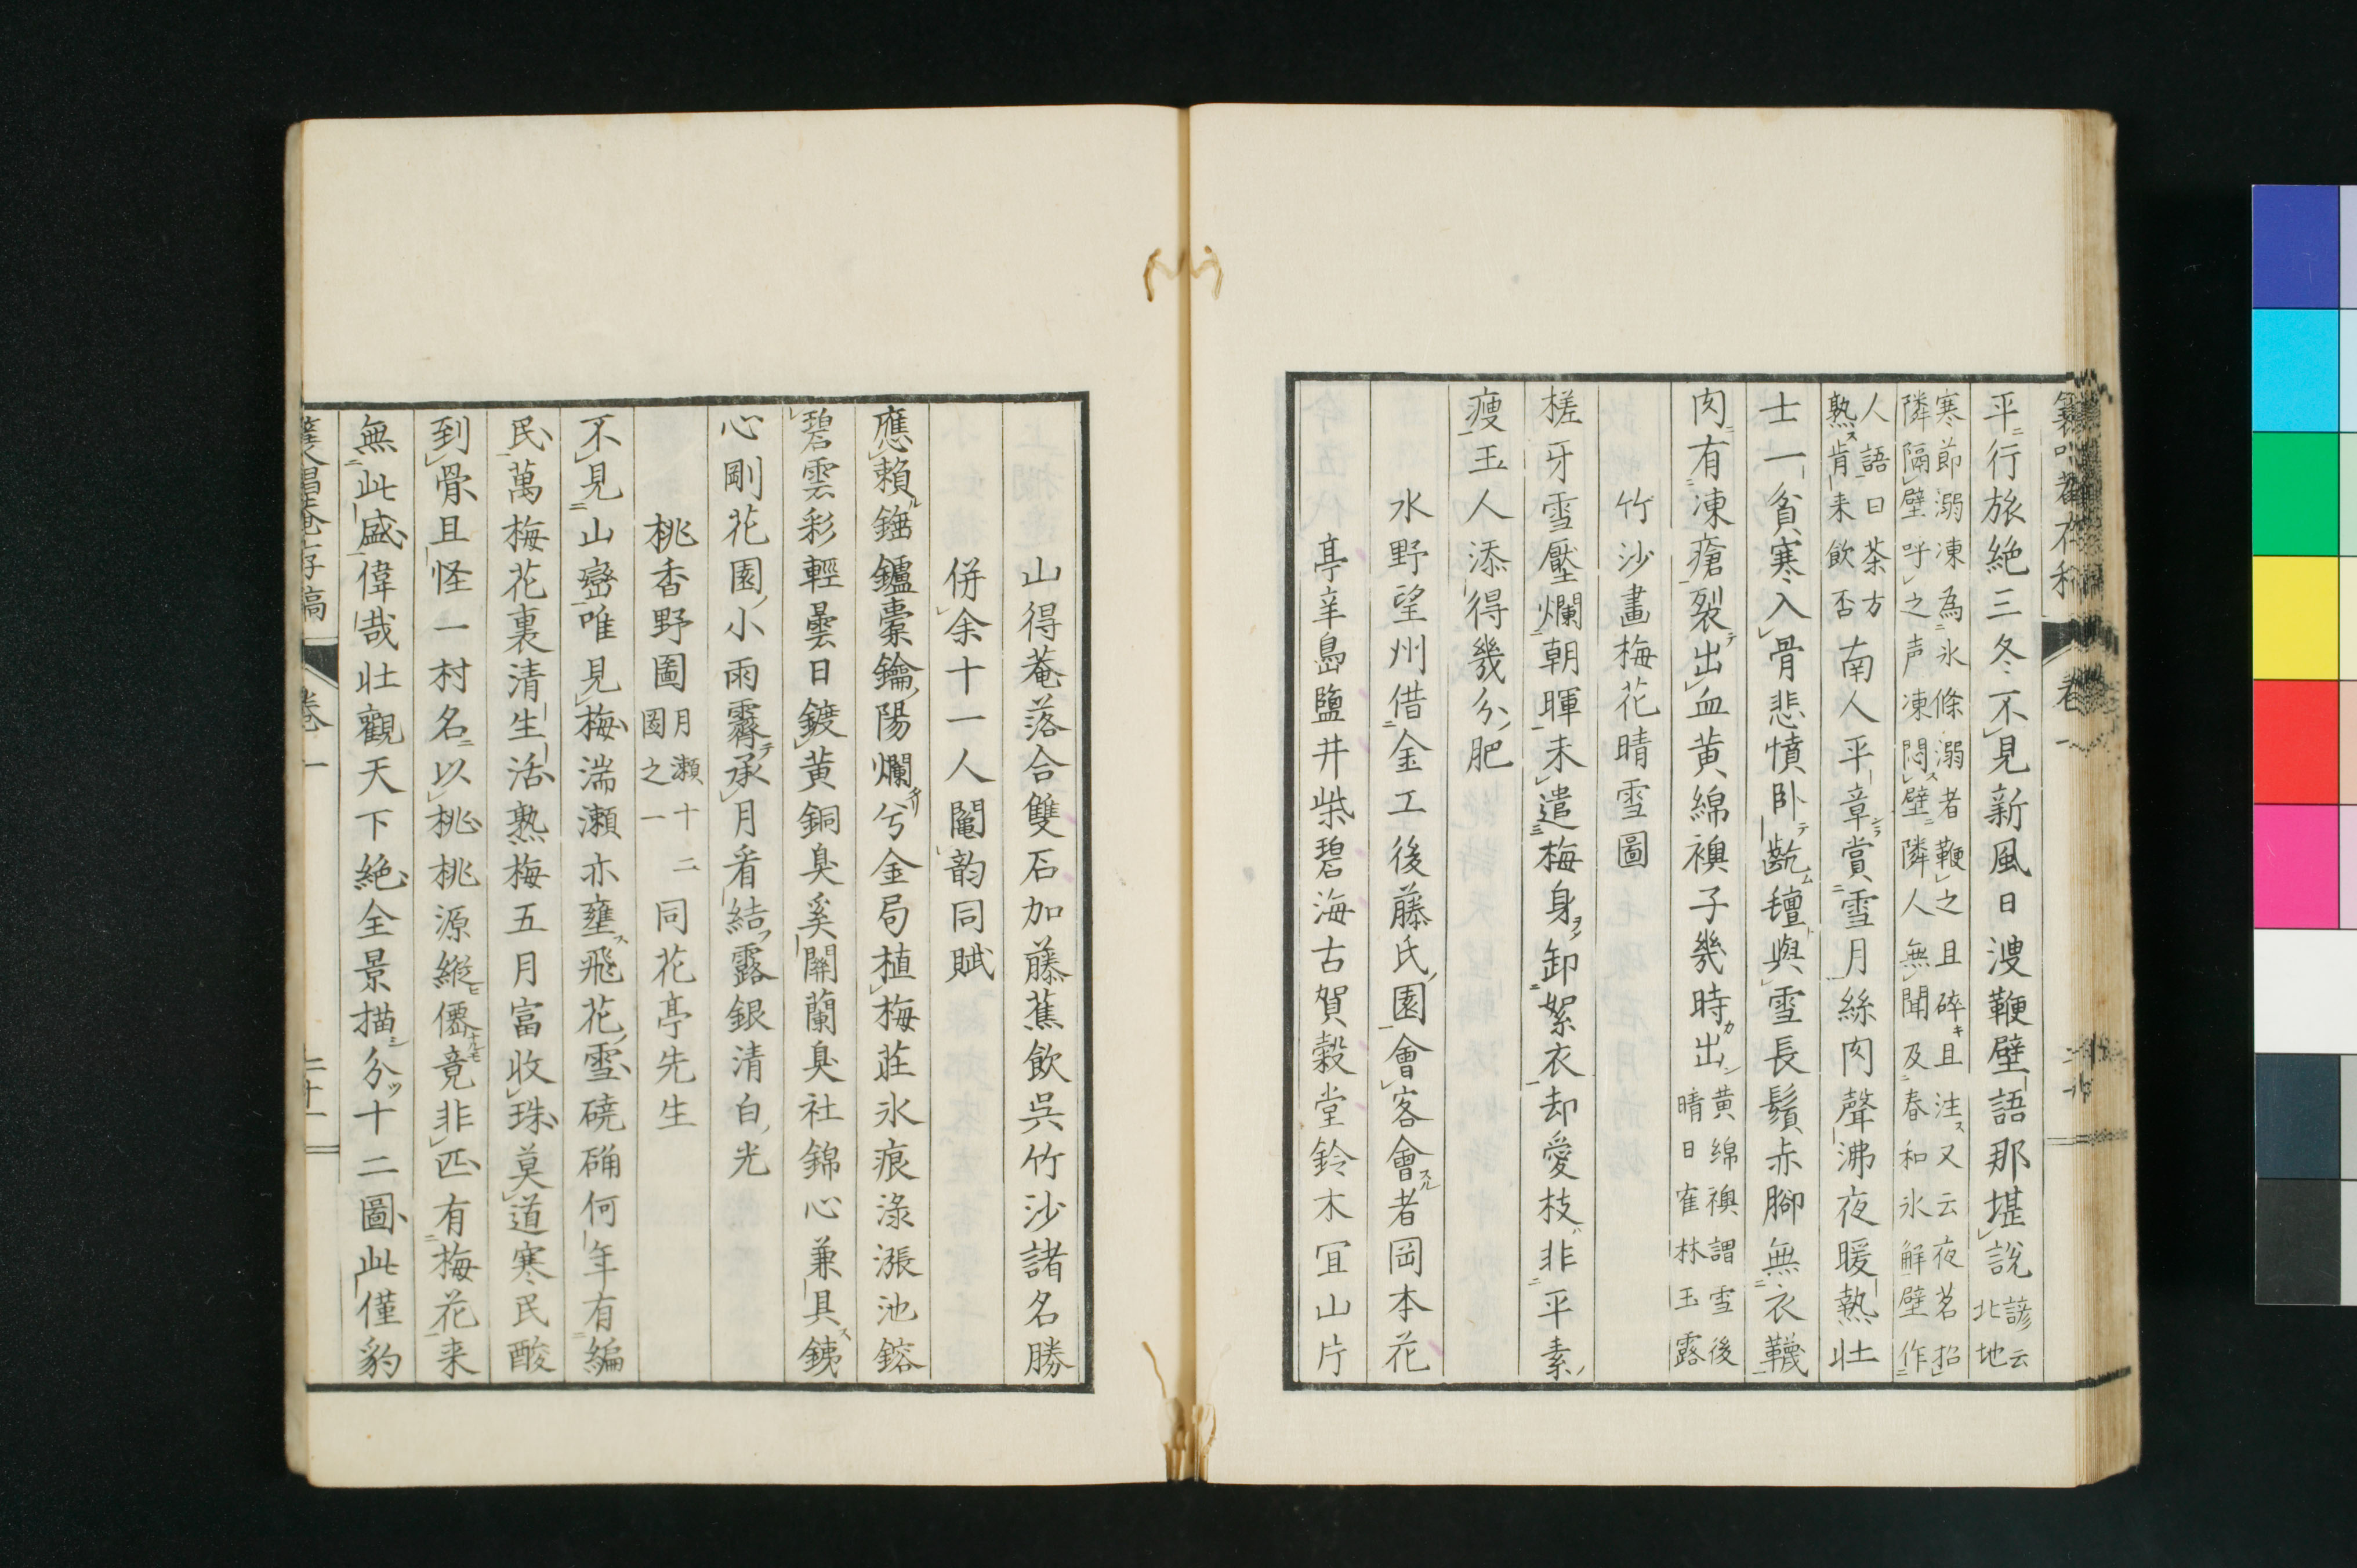 平行旅絶三冬不見新風日溲鞭壁語那堪說諺云北地
寒節溺凍為氷條溺者鞭之且碎且注又云夜茗招
隣隔壁呼之声凍悶壁隣人無聞及春和氷解壁作
人語曰茶方熟肯来飲否南人平章賞雪月絲肉聲沸夜暖熱壮
士一貧寒入骨悲憤卧齕氊與雪長鬚赤脚無衣韈
肉有凍瘡裂出血黄綿襖子幾時出黄綿襖謂雪後晴日隺林玉露
竹沙畫梅花晴雪圖
槎牙雪壓爛朝暉未遣梅身卸絮衣却愛枝非平素
瘦玉人添得幾分肥
水野望州借金工後藤氏園會客會者岡本花
亭辛島鹽井柴碧海古賀穀堂鈴木冝山片
山得菴落合雙石加藤蕉飲呉竹沙諸名勝
併余十一人鬮韵同賦
應賴鍦鑪橐鑰陽爛兮金局植梅莊氷痕淥漲池鎔
碧雲彩輕曇日鍍黄銅臭奚關蘭臭社錦心兼具銕
心剛花園小雨霽承月看結露銀清白光
桃香野圖月瀬十二圖之一同花亭先生
不見山巒唯見梅湍瀬亦壅飛花雪磽确何年有編
民萬梅花裏清生活熟梅五月富收珠莫道寒民酸
到骨且怪一村名以桃桃源縱僊竟非匹有梅花来
無此盛偉哉壮觀天下絶全景描分十二圖此僅豹
卷一
二十一